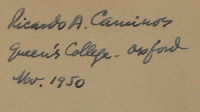 Ricardo A. Caminos
Queen's College - Oxford
Nov. 1950